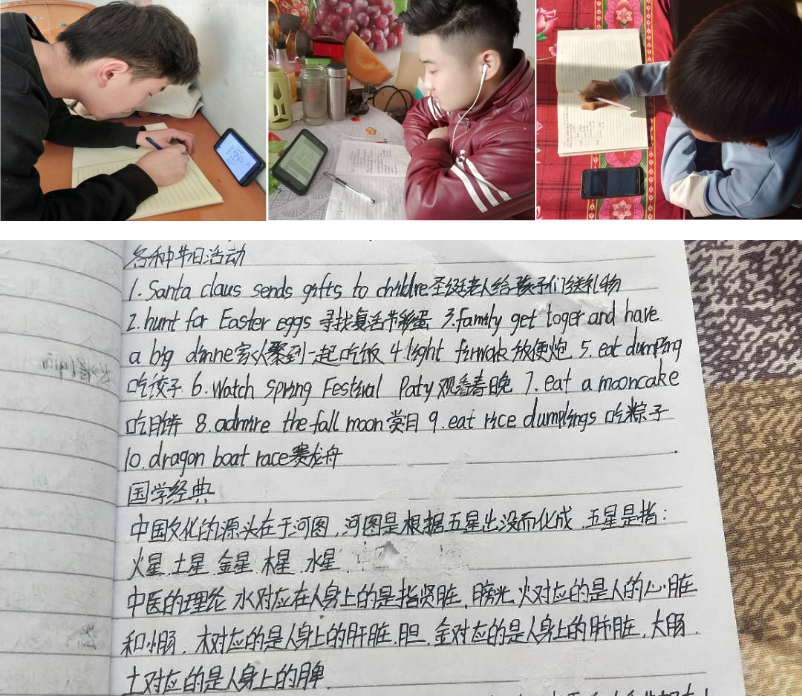 各种节日活动
1. Santa claus sends gifts to childre 圣诞老人给孩子们送礼物
2. hunt for Easter eggs 寻找复活节彩蛋 3. family get toger and have
a big dinne 家人聚到一起吃饭 4 light firwork 放便炮 5. eat dumping
吃饺子 6. Watch Spring Festival Paty 观看春晚 7. eat a mooncake
吃月饼 8. admire the fall moon 赏月 9. eat rice dumplings 吃粽子
10. dragon boat race 赛龙舟
国学经典
中国文化的源头在于河图，河图是根据五星出没而化成，五星是指：
火星 土星 金星 木星 水星
中医的理论 水对应在人身上的是指肾脏，膀光，火对应的是人的心脏
和小肠，木对应的是人身上的肝脏，胆，金对应的是人身上的肺脏，大肠，
土对应的是人身上的脾